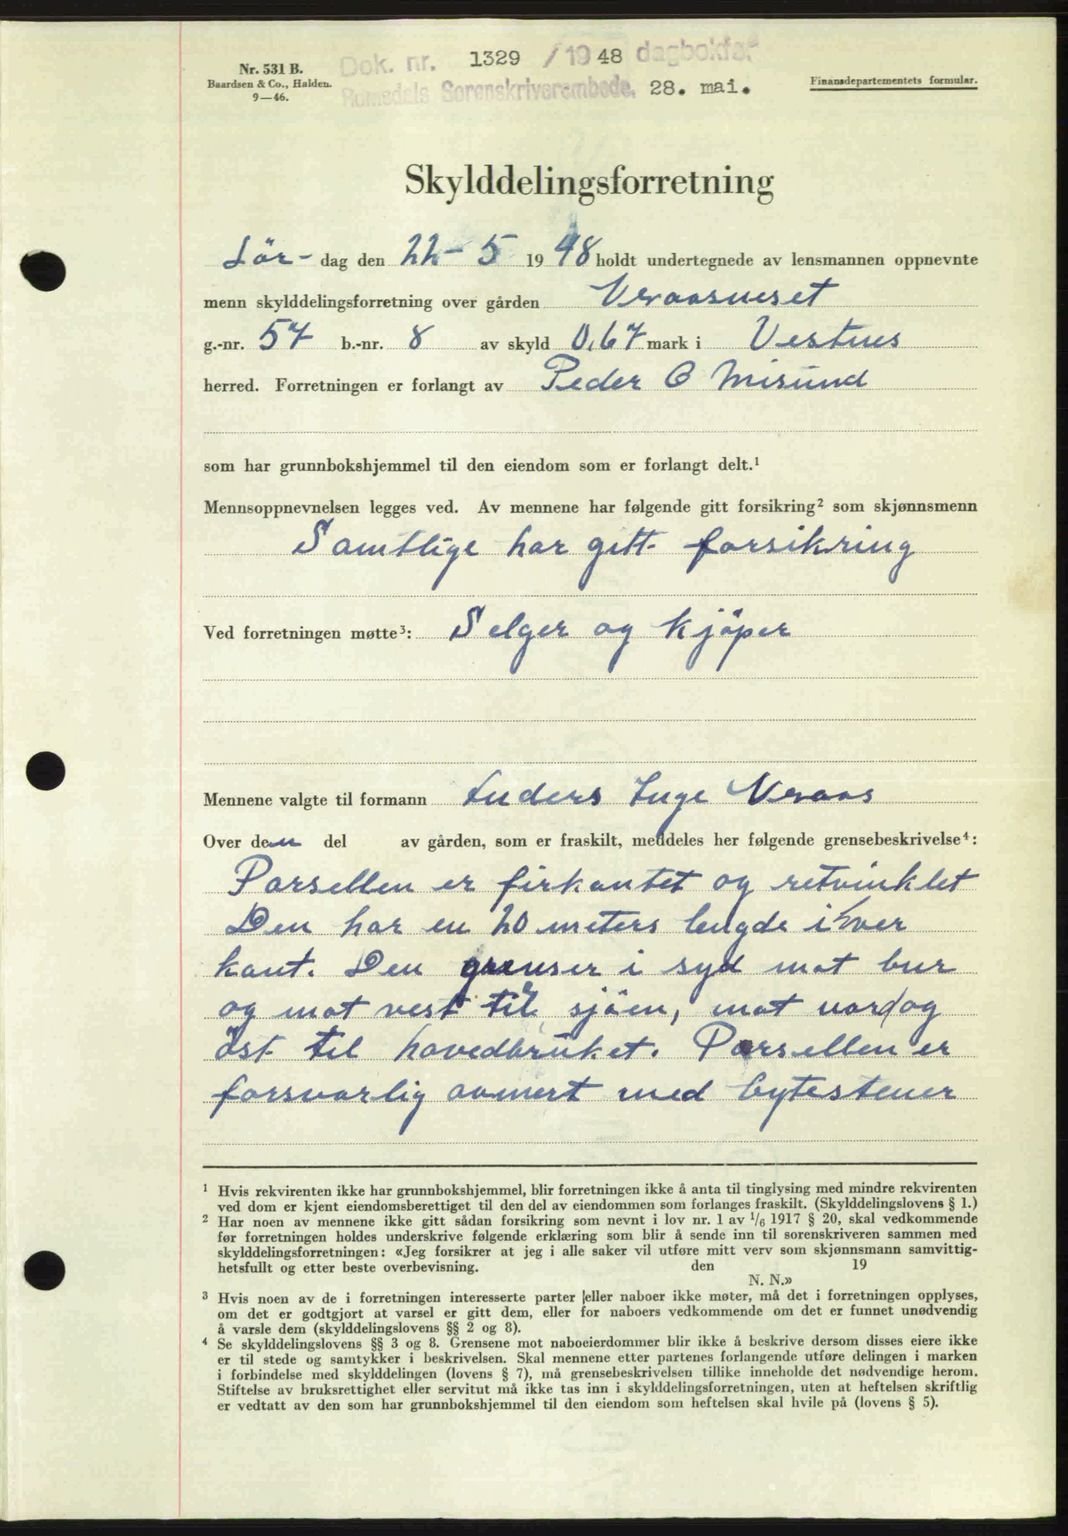 Nr. 531 B.
Baardsen & Co., Halden.
9—46.
Dok. nr. 1329 / 1948 dagbokført
Romsdals Sorenskriverembede, 28. mai.
Finansdepartementets formular.
Skylddelingsforretning
Lör- dag den 22-5 1948 holdt undertegnede av lensmannen oppnevnte
menn skylddelingsforretning over gården Vraasneset
g.-nr. 57 b.-nr. 8 av skyld 0,67 mark i Vestnes
herred. Forretningen er forlangt av Peder O Misund
som har grunnbokshjemmel til den eiendom som er forlangt delt.¹
Mennsoppnevnelsen legges ved. Av mennene har følgende gitt forsikring² som skjønnsmenn
Samtlige har gitt forsikring
Ved forretningen møtte³: Selger og kjöper
Mennene valgte til formann Anders Inge Vraas
Over den del av gården, som er fraskilt, meddeles her følgende grensebeskrivelse⁴:
Parsellen er firkantet og retvinklet
Den har en 20 meters lengde i hver
kant. Den grenser i syd mot bur
og mot vest til sjöen, mot nord og
öst til hovedbruket. Parsellen er
forsvarlig avmert med bytestener
¹ Hvis rekvirenten ikke har grunnbokshjemmel, blir forretningen ikke å anta til tinglysing med mindre rekvirenten
ved dom er kjent eiendomsberettiget til den del av eiendommen som forlanges fraskilt. (Skylddelingslovens § 1.)
² Har noen av mennene ikke gitt sådan forsikring som nevnt i lov nr. 1 av 1/6 1917 § 20, skal vedkommende
før forretningen holdes underskrive følgende erklæring som blir å sende inn til sorenskriveren sammen med
skylddelingsforretningen: «Jeg forsikrer at jeg i alle saker vil utføre mitt verv som skjønnsmann samvittig-
hetsfullt og etter beste overbevisning. den 19
N. N.»
³ Hvis noen av de i forretningen interesserte parter eller naboer ikke møter, må det i forretningen opplyses,
om det er godtgjort at varsel er gitt dem, eller for naboers vedkommende om det er funnet unødvendig
å varsle dem (skylddelingslovens §§ 2 og 8).
⁴ Se skylddelingslovens §§ 3 og 8. Grensene mot naboeierdommer blir ikke å beskrive dersom disses eiere ikke
er til stede og samtykker i beskrivelsen. Skal mennene etter partenes forlangende utføre delingen i marken
i forbindelse med skylddelingen (lovens § 7), må grensebeskrivelsen tillike inneholde det nødvendige herom.
Stiftelse av bruksrettighet eller servitut må ikke tas inn i skylddelingsforretningen, uten at heftelsen skriftlig
er vedtatt av den som har grunnbokshjemmel til den eiendom som heftelsen skal hvile på (lovens § 5).